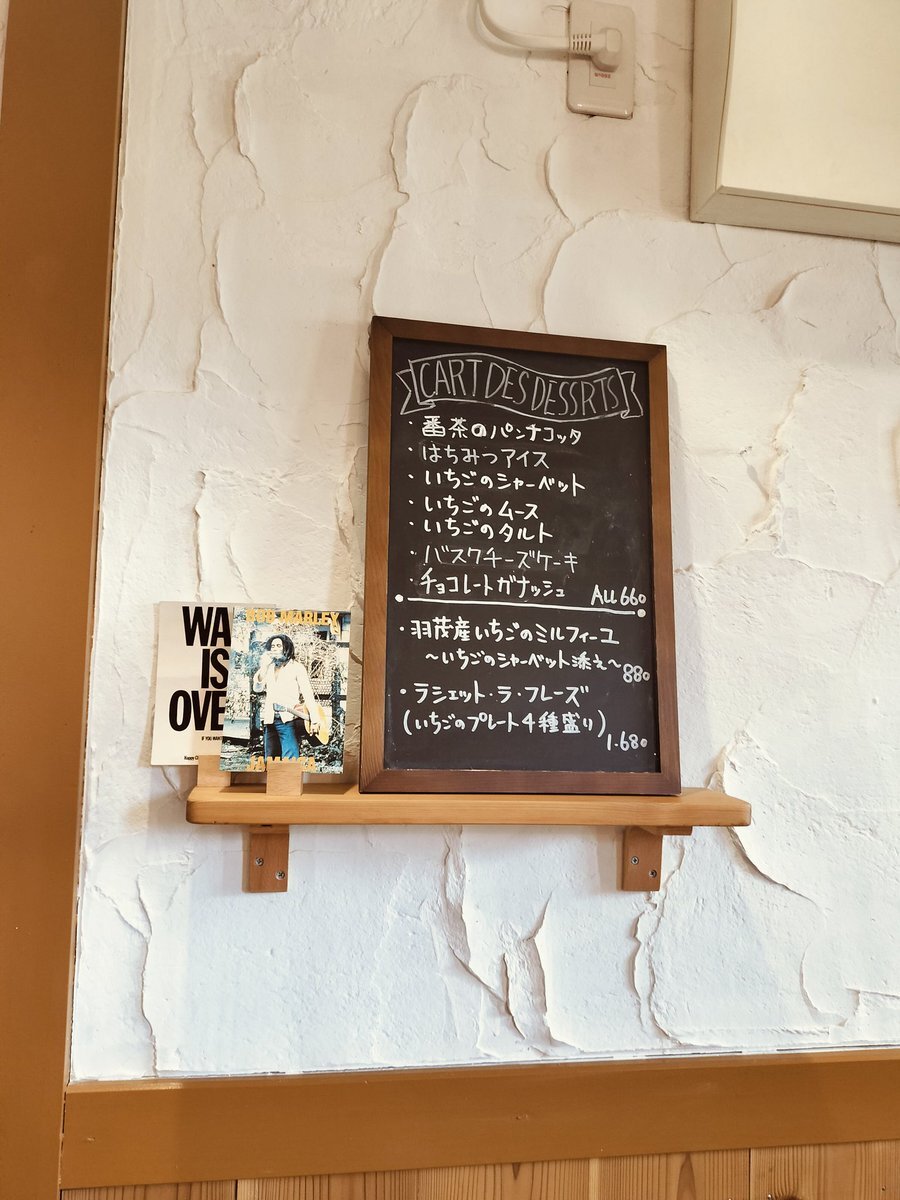 CART DES DESSRTS
・番茶のパンナコッタ
・はちみつアイス
・いちごのシャーベット
・いちごのムース
・いちごのタルト
・バスクチーズケーキ
・チョコレートガナッシュ ALL 660
・羽茂産いちごのミルフィーユ
～いちごのシャーベット添え～ 880
・ラシェット・ラ・フレーズ
(いちごのプレート4種盛り)
1.680
WA
IS
OVE
IF YOU WANT
Happy C
BOB MARLEY